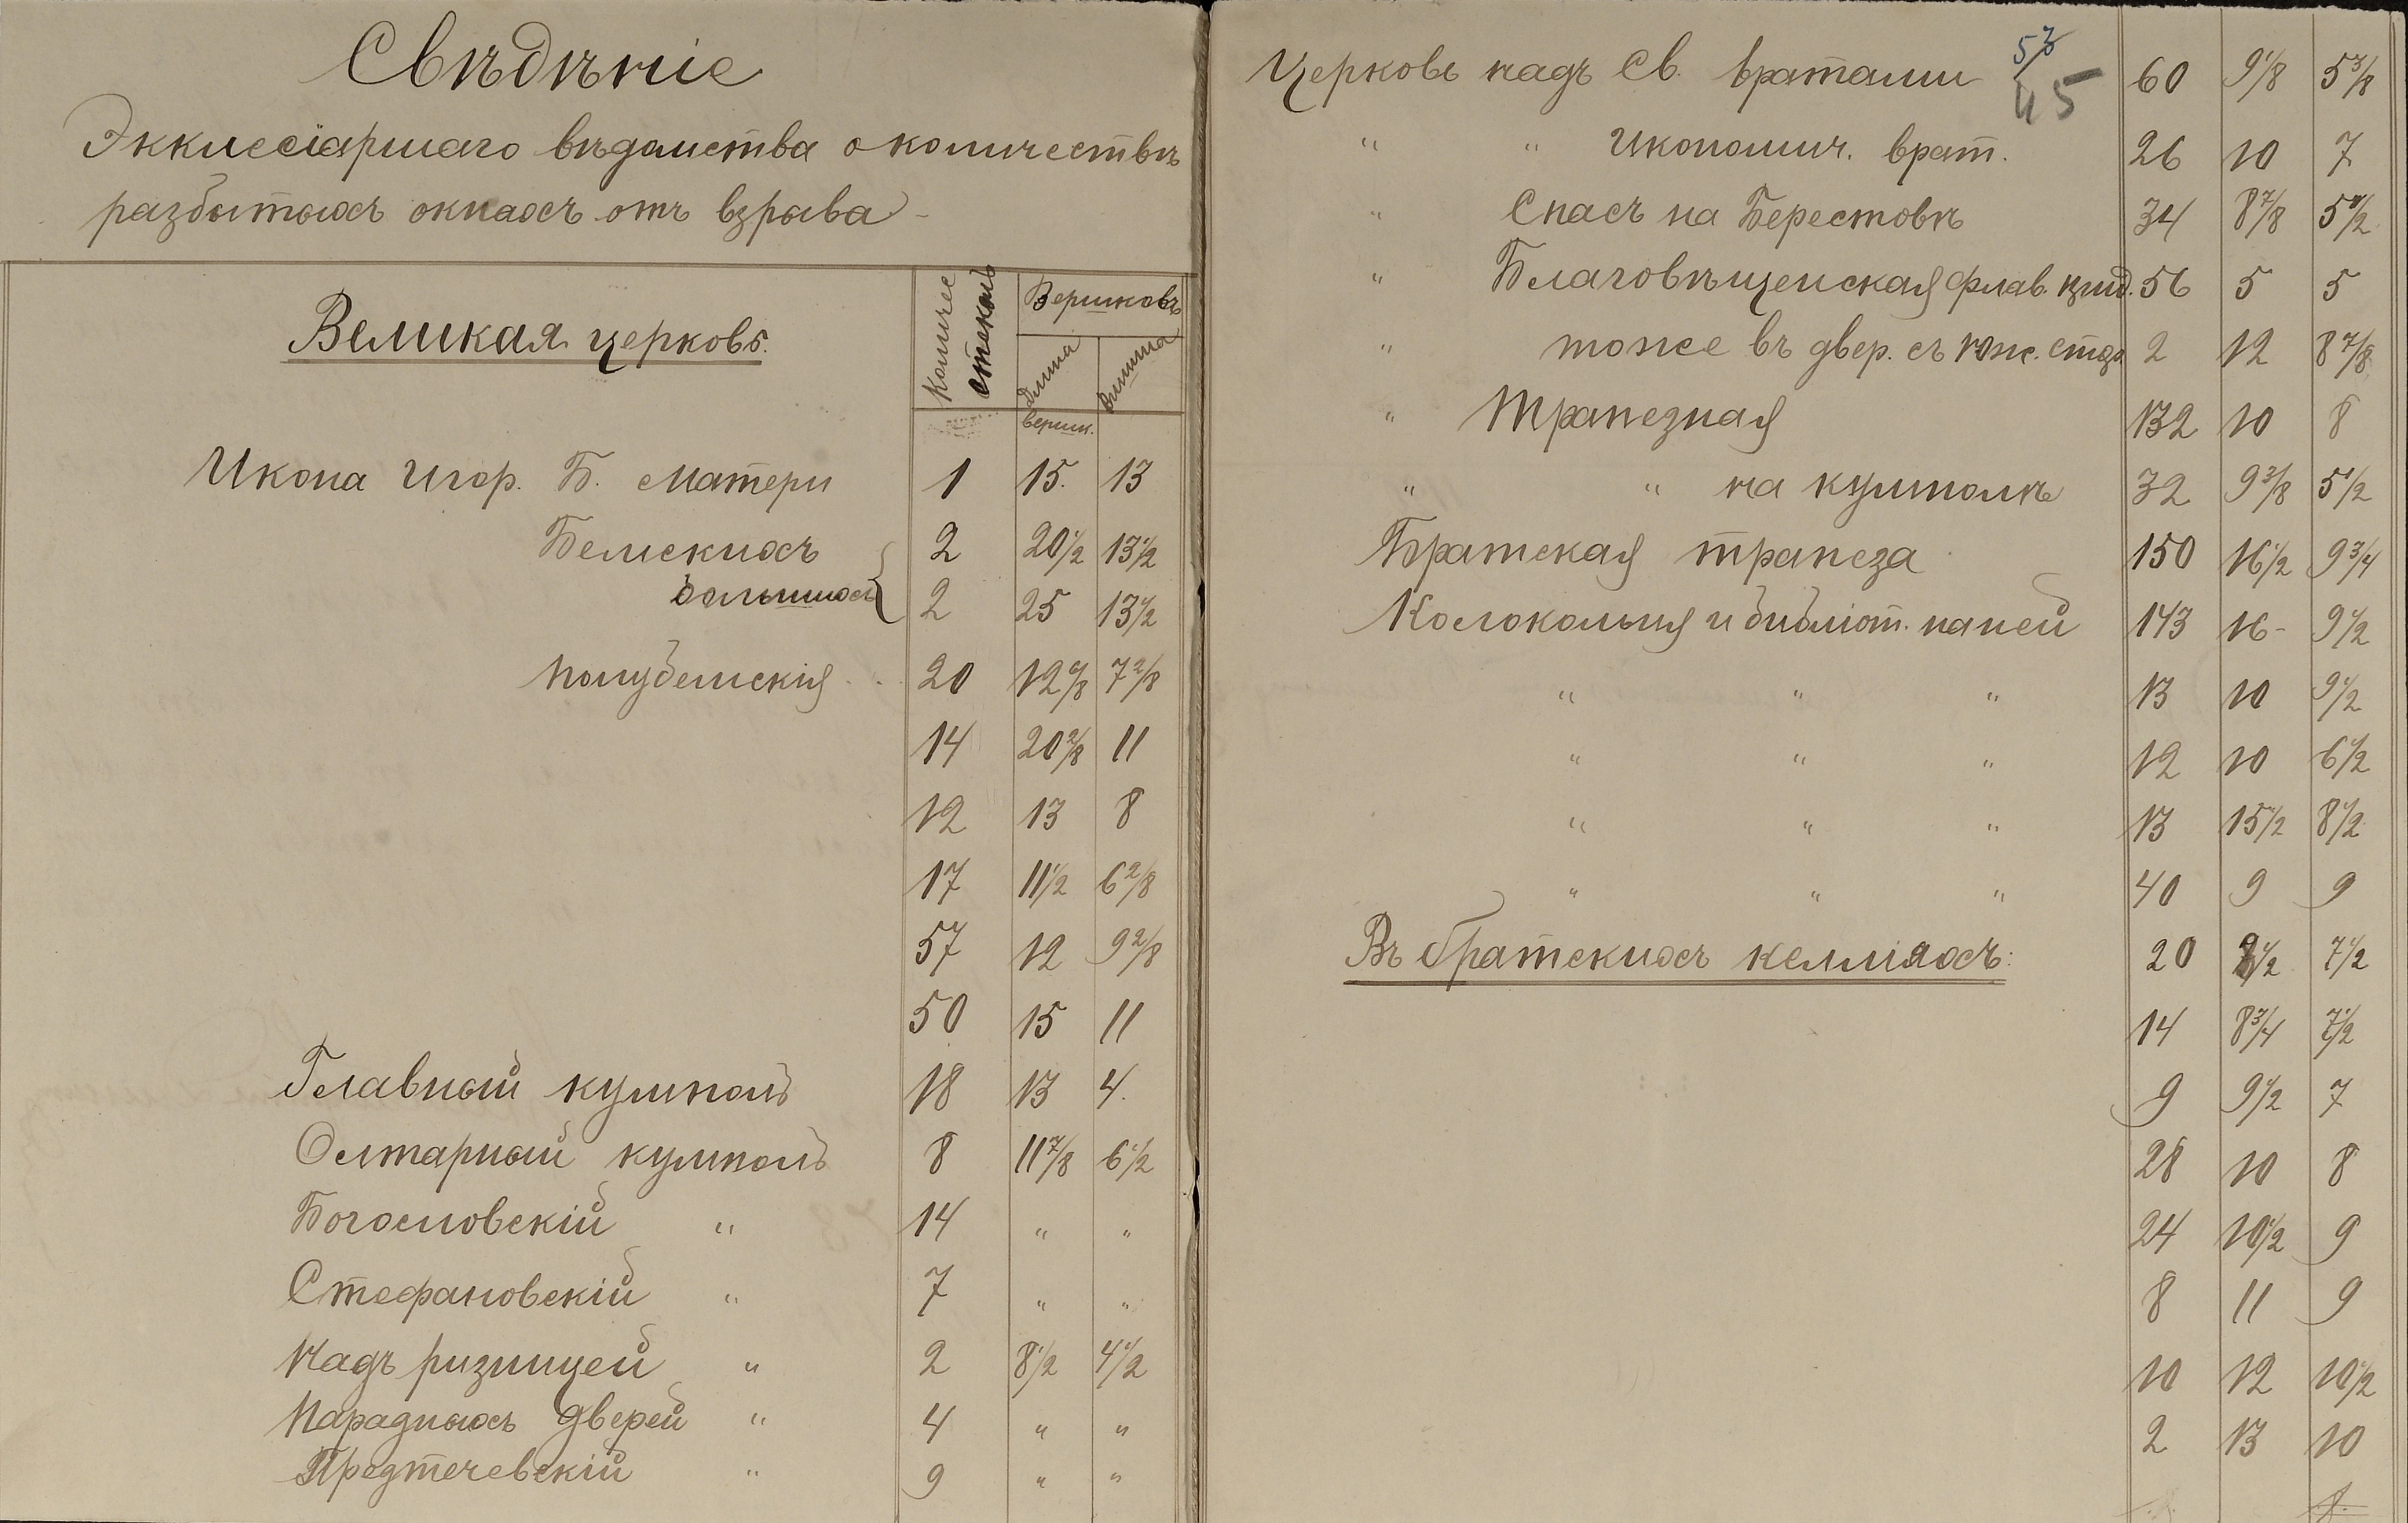 Свѣдѣніе
Экклесіаршаго вѣдомства о количествѣ
разбитыхъ окнахъ отъ взрыва
Великая церковь.
Количес стеколъ
Вершковъ
Длина
Ширина
вершк.
Икона Игор. Б. Матери 1 15. 13
Бемскихъ 2 20 1/2 13 1/2
большихъ 2 25 13 1/2
Полубемскія 20 7 2/8
14 20 2/8 11
12 13 8
17 11 1/2 6 2/8
57 12 9 2/8
50 15 11
Главный кумполъ 18 13 4.
Олтарный кумполъ 8 11 7/8 6 1/2
Богословскій " 14 " "
Стефановскій " 7 " "
Надъ ризницей " 2 8 1/2 4 1/2
Парадныхъ дверей " 4 " "
Предтечевскій " 9 " "
Церковь надъ Св. вратами 60 9 1/8 5 3/8
45
" " Икономич. врат. 26 10 7
" Спасъ на Берестовѣ 34 8 7/8 5 1/2
" Благовѣщенская флав. 56 5 5
" тоже въ двер. съ юж. стор. 2 12 8 7/8
" Трапезная 132 10 8
" " на кумполѣ 32 9 3/8 5 1/2
Братская трапеза 150 16 1/2 9 3/4
Колокольня и библіот. на ней 143 16 - 9 1/2
" " " 13 10 9 1/2
" " " 12 10 6 1/2
" " " 13 15 1/2 8 1/2
" " " 40 9 9
Въ братскихъ келліяхъ: 20 9 1/2 7 1/2
14 8 3/4 7 1/2
9 9 1/2 7
28 10 8
24 10 1/2 9
8 11 9
10 12 10 1/2
2 13 10